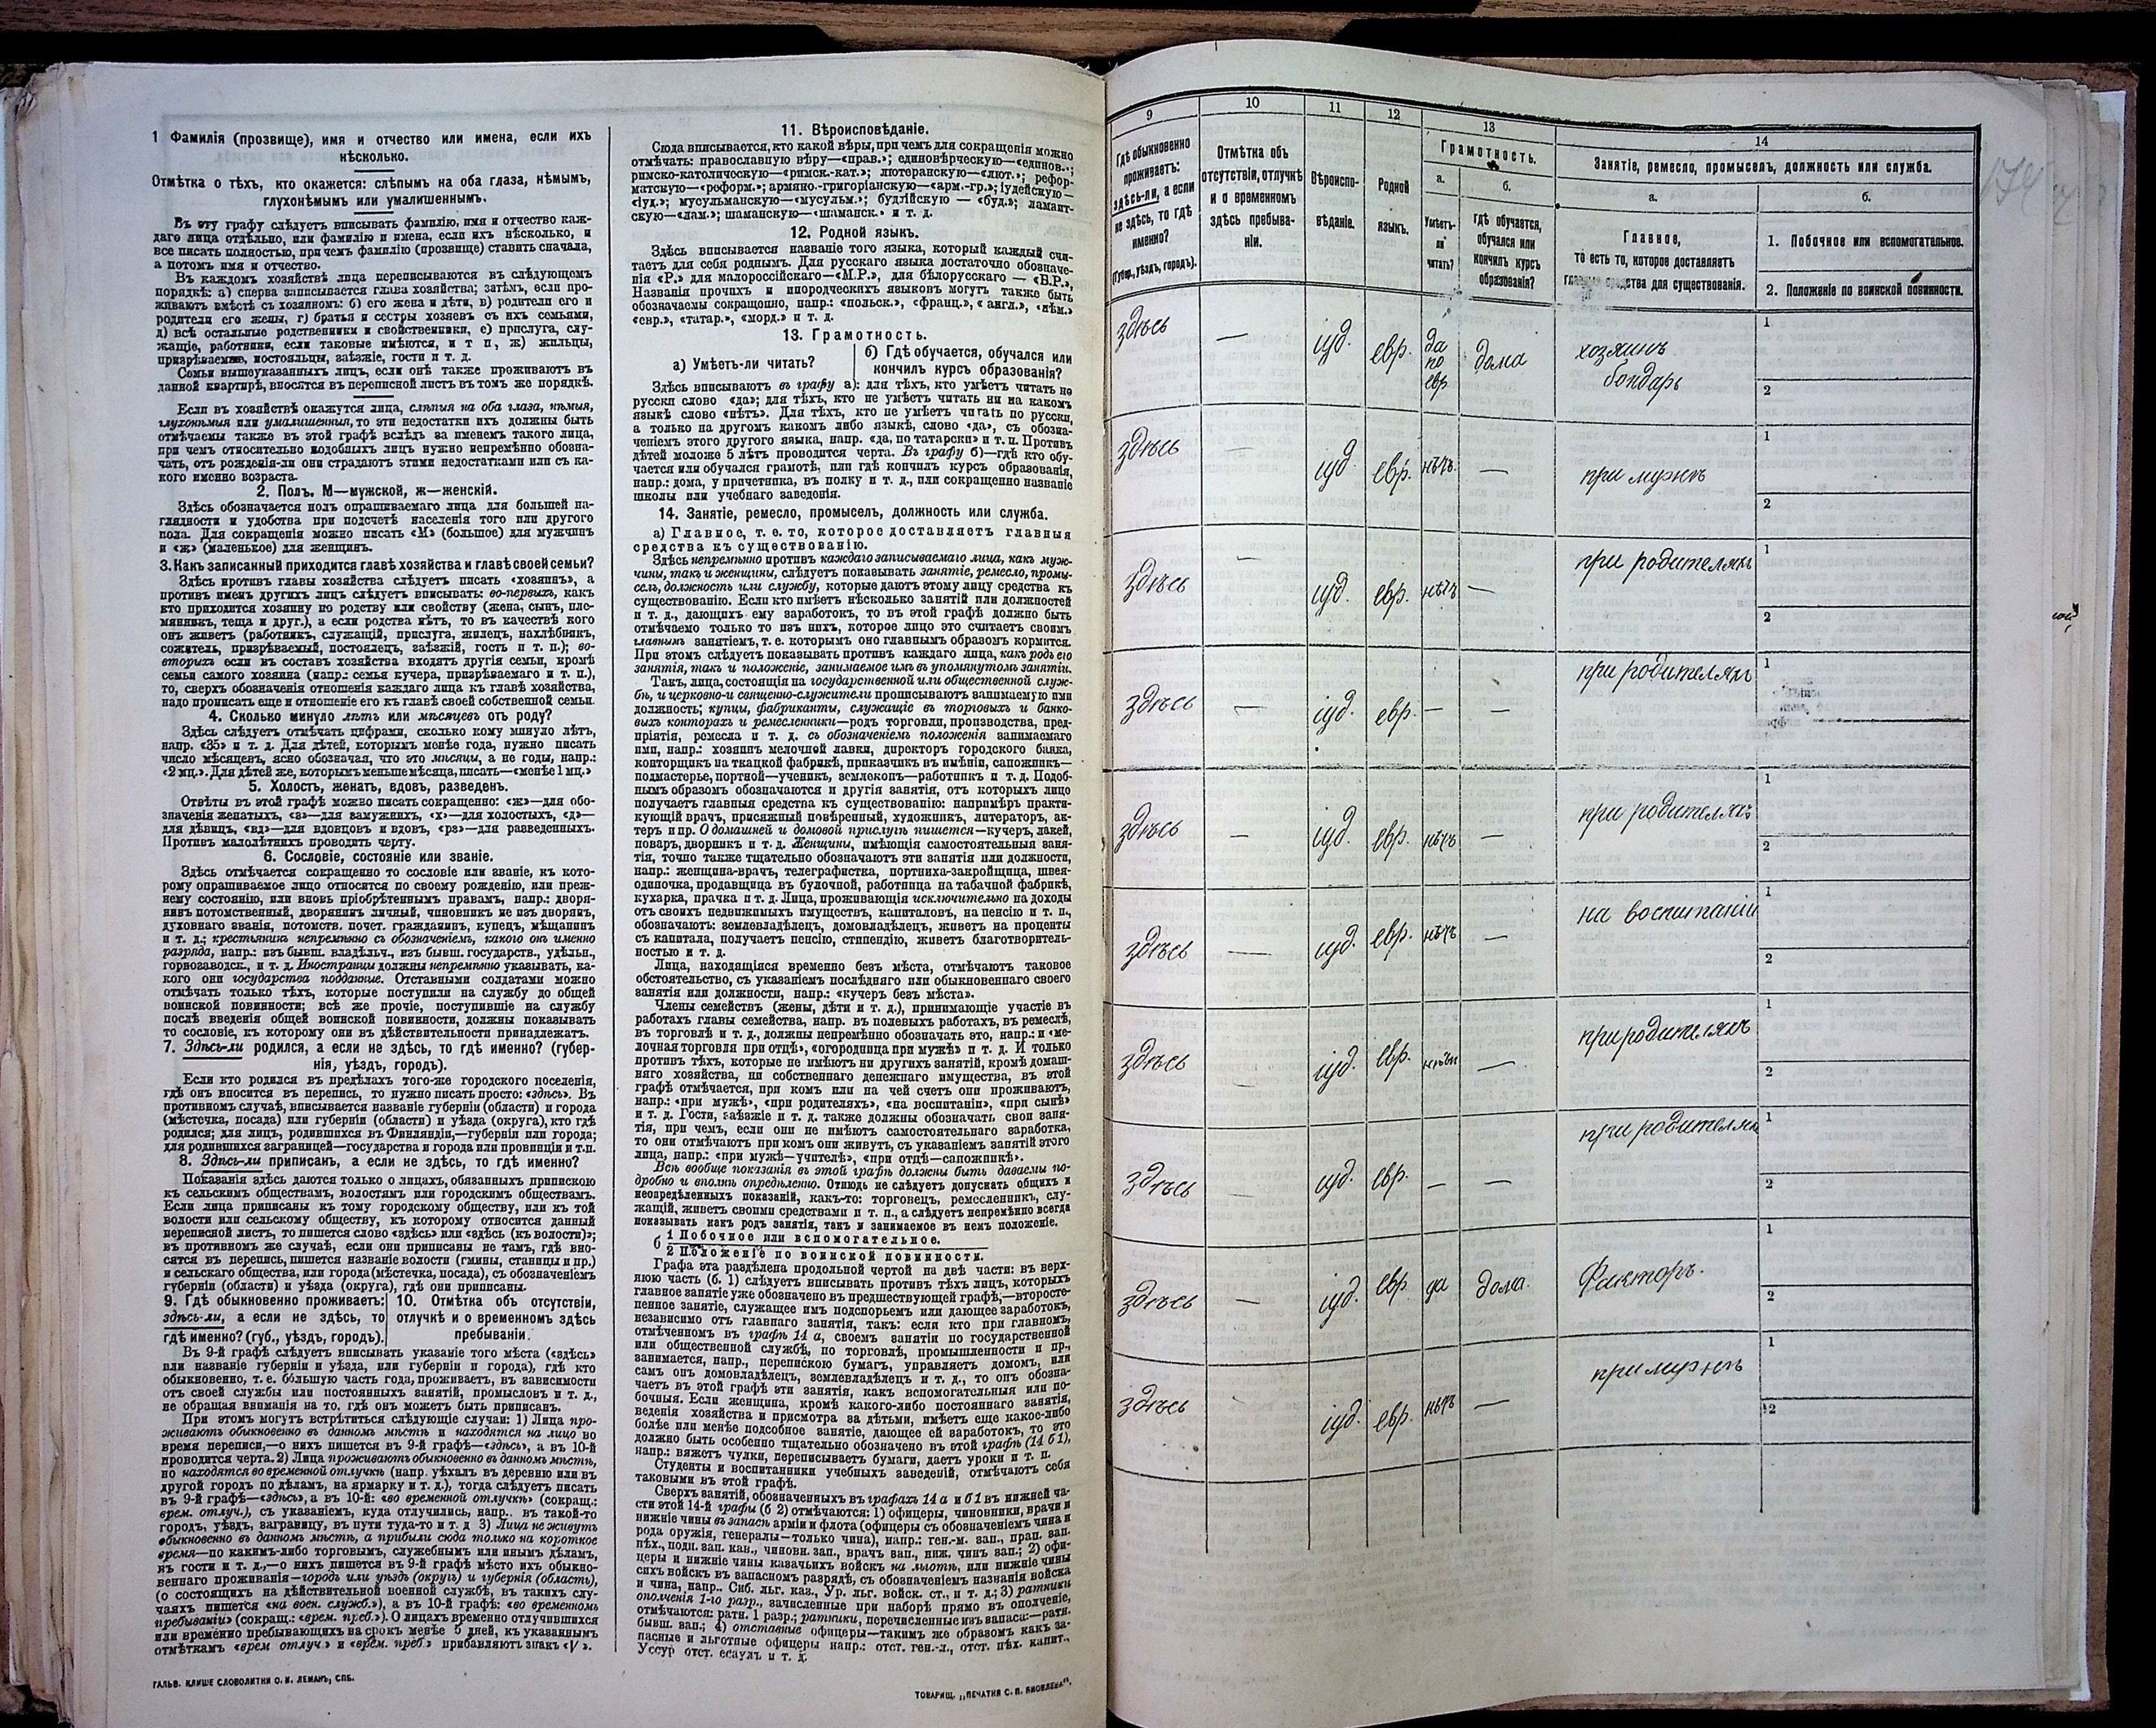 1 Фамилія (прозвище), имя и отчество или имена, если ихъ
нѣсколько.
Отмѣтка о тѣхъ, кто окажется: слѣпымъ на оба глаза, нѣмымъ,
глухонѣмымъ или умалишеннымъ.
Въ эту графу слѣдуетъ вписывать фамилію, имя и отчество каж-
даго лица отдѣльно, или фамилію и имена, если ихъ нѣсколько, и
все писать полностью, при чемъ фамилію (прозвище) ставить сначала,
а потомъ имя и отчество.
Въ каждомъ хозяйствѣ лица переписываются въ слѣдующемъ
порядкѣ: а) сперва записывается глава хозяйства; затѣмъ, если про-
живаютъ вмѣстѣ съ хозяиномъ: б) его жена и дѣти, в) родители его и
родители его жены, г) братья и сестры хозяевъ съ ихъ семьями,
д) всѣ остальные родственники и свойственники, е) прислуга, слу-
жащіе, работники, если таковые имѣются, и т п, ж) жильцы,
призрѣваемые, постояльцы, заѣзжіе, гости и т. д.
Семьи вышеуказанныхъ лицъ, если онѣ также проживаютъ въ
данной квартирѣ, вносятся въ переписной листъ въ томъ же порядкѣ.
Если въ хозяйствѣ окажутся лица, слѣпыя на оба глаза, нѣмыя,
глухонѣмыя или умалишенныя, то эти недостатки ихъ должны быть
отмѣчаемы также въ этой графѣ вслѣдъ за именемъ такого лица,
при чемъ относительно подобныхъ лицъ нужно непремѣнно обозна-
чать, отъ рожденія-ли они страдаютъ этими недостатками или съ ка-
кого именно возраста.
2. Полъ. М—мужской, ж—женскій.
Здѣсь обозначается полъ опрашиваемаго лица для большей на-
глядности и удобства при подсчетѣ населенія того или другого
пола. Для сокращенія можно писать «М» (большое) для мужчинъ
и «ж» (маленькое) для женщинъ.
3. Какъ записанный приходится главѣ хозяйства и главѣ своей семьи?
Здѣсь противъ главы хозяйства слѣдуетъ писать «хозяинъ», а
противъ именъ другихъ лицъ слѣдуетъ вписывать: во-первыхъ, какъ
кто приходится хозяину по родству или свойству (жена, сынъ, пле-
мянникъ, теща и друг.), а если родства нѣтъ, то въ качествѣ кого
онъ живетъ (работникъ, служащій, прислуга, жилецъ, нахлѣбникъ,
сожитель, призрѣваемый, постоялецъ, заѣзжій, гость и т. п.); во-
вторыхъ если въ составъ хозяйства входятъ другія семьи, кромѣ
семьи самого хозяина (напр.: семья кучера, призрѣваемаго и т. п.),
то, сверхъ обозначенія отношенія каждаго лица къ главѣ хозяйства,
надо прописать еще и отношеніе его къ главѣ своей собственной семьи.
4. Сколько минуло лѣтъ или мѣсяцевъ отъ роду?
Здѣсь слѣдуетъ отмѣчать цифрами, сколько кому минуло лѣтъ,
напр. «35» и т. д. Для дѣтей, которымъ менѣе года, нужно писать
число мѣсяцевъ, ясно обозначая, что это мѣсяцы, а не годы, напр.:
«2 мц.». Для дѣтей же, которымъ меньше мѣсяца, писать—«менѣе 1 мц.»
5. Холостъ, женатъ, вдовъ, разведенъ.
Отвѣты въ этой графѣ можно писать сокращенно: «ж»—для обо-
значенія женатыхъ, «з»—для замужнихъ, «х»—для холостыхъ, «д»—
для дѣвицъ, «вд»—для вдовцовъ и вдовъ, «рз»—для разведенныхъ.
Противъ малолѣтнихъ проводить черту.
6. Сословіе, состояніе или званіе.
Здѣсь отмѣчается сокращенно то сословіе или званіе, къ кото-
рому опрашиваемое лицо относится по своему рожденію, или преж-
нему состоянію, или вновь пріобрѣтеннымъ правамъ, напр.: дворя-
нинъ потомственный, дворянинъ личный, чиновникъ не изъ дворянъ,
духовнаго званія, потомств. почет. гражданинъ, купецъ, мѣщанинъ
и т. д.; крестьянинъ непремѣнно съ обозначеніемъ, какого онъ именно
разряда, напр.: изъ бывш. владѣльч., изъ бывш. государств., удѣльн.,
горнозаводск., и т. д. Иностранцы должны непремѣнно указывать, ка-
кого они государства подданные. Отставными солдатами можно
отмѣчать только тѣхъ, которые поступили на службу до общей
воинской повинности; всѣ же прочіе, поступившіе на службу
послѣ введенія общей воинской повинности, должны показывать
то сословіе, къ которому они въ дѣйствительности принадлежатъ.
7. Здѣсь-ли родился, а если не здѣсь, то гдѣ именно? (губер-
нія, уѣздъ, городъ).
Если кто родился въ предѣлахъ того-же городского поселенія,
гдѣ онъ вносится въ перепись, то нужно писать просто: «здѣсь». Въ
противномъ случаѣ, вписывается названіе губерніи (области) и города
(мѣстечка, посада) или губерніи (области) и уѣзда (округа), кто гдѣ
родился; для лицъ, родившихся въ Финляндіи,—губерніи или города;
для родившихся заграницей—государства и города или провинціи и т.п.
8. Здѣсь-ли приписанъ, а если не здѣсь, то гдѣ именно?
Показанія здѣсь даются только о лицахъ, обязанныхъ припискою
къ сельскимъ обществамъ, волостямъ или городскимъ обществамъ.
Если лица приписаны къ тому городскому обществу, или къ той
волости или сельскому обществу, къ которому относится данный
переписной листъ, то пишется слово «здѣсь» или «здѣсь (къ волости)»;
въ противномъ же случаѣ, если они приписаны не тамъ, гдѣ вно-
сятся въ перепись, пишется названіе волости (гмины, станицы и пр.)
и сельскаго общества, или города (мѣстечка, посада), съ обозначеніемъ
губерніи (области) и уѣзда (округа), гдѣ они приписаны.
9. Гдѣ обыкновенно проживаетъ:
здѣсь-ли, а если не здѣсь, то
гдѣ именно? (губ., уѣздъ, городъ).
10. Отмѣтка объ отсутствіи,
отлучкѣ и о временномъ здѣсь
пребываніи.
Въ 9-й графѣ слѣдуетъ вписывать указаніе того мѣста («здѣсь»
или названіе губерніи и уѣзда, или губерніи и города), гдѣ кто
обыкновенно, т. е. бо́льшую часть года, проживаетъ, въ зависимости
отъ своей службы или постоянныхъ занятій, промысловъ и т. д.,
не обращая вниманія на то, гдѣ онъ можетъ быть приписанъ.
При этомъ могутъ встрѣтиться слѣдующіе случаи: 1) Лица про-
живаютъ обыкновенно въ данномъ мѣстѣ и находятся на лицо во
время переписи,—о нихъ пишется въ 9-й графѣ—«здѣсь», а въ 10-й
проводится черта. 2) Лица проживаютъ обыкновенно въ данномъ мѣстѣ,
но находятся во временной отлучкѣ (напр. уѣхалъ въ деревню или въ
другой городъ по дѣламъ, на ярмарку и т. д.), тогда слѣдуетъ писать
въ 9-й графѣ—«здѣсь», а въ 10-й: «во временной отлучкѣ» (сокращ.:
врем. отлуч.), съ указаніемъ, куда отлучились, напр.. въ такой-то
городъ, уѣздъ, заграницу, въ пути туда-то и т. д 3) Лица не живутъ
обыкновенно въ данномъ мѣстѣ, а прибыли сюда только на короткое
время—по какимъ-либо торговымъ, служебнымъ или инымъ дѣламъ,
въ гости и т. д.,—о нихъ пишется въ 9-й графѣ мѣсто ихъ обыкно-
веннаго проживанія—городъ или уѣздъ (округъ) и губернія (область),
(о состоящихъ на дѣйствительной военной службѣ, въ такихъ слу-
чаяхъ пишется «на воен. службѣ»), а въ 10-й графѣ: «во временномъ
пребываніи» (сокращ.: «врем. преб.»). О лицахъ временно отлучившихся
или временно пребывающихъ на срокъ менѣе 5 дней, къ указаннымъ
отмѣткамъ «врем отлуч.» и «врем. преб.» прибавляютъ знакъ «V».
ГАЛЬВ. КЛИШЕ СЛОВОЛИТНИ О. И. ЛЕМАНЪ, СПБ.
11. Вѣроисповѣданіе.
Сюда вписывается, кто какой вѣры, при чемъ для сокращенія можно
отмѣчать: православную вѣру—«прав.»; единовѣрческую—«единов.»;
римско-католическую—«римск.-кат.»; лютеранскую—«лют.»; рефор-
матскую—«реформ.»; армяно.-григоріанскую—«арм.-гр.»; іудейскую—
«іуд.»; мусульманскую—«мусульм.»; буддійскую — «буд.»; ламаит-
скую—«лам.»; шаманскую—«шаманск.» и т. д.
12. Родной языкъ.
Здѣсь вписывается названіе того языка, который каждый счи-
таетъ для себя роднымъ. Для русскаго языка достаточно обозначе-
нія «Р.» для малороссійскаго—«М.Р.», для бѣлорусскаго — «Б.Р.»,
Названія прочихъ и инородческихъ языковъ могутъ также быть
обозначаемы сокращонно, напр.: «польск.», «франц.», « англ.», «нѣм.»
«евр.», «татар.», «морд.» и т. д.
13. Грамотность.
а) Умѣетъ-ли читать?
б) Гдѣ обучается, обучался или
кончилъ курсъ образованія?
Здѣсь вписываютъ въ графу а): для тѣхъ, кто умѣетъ читать по
русски слово «да»; для тѣхъ, кто не умѣетъ читать ни на какомъ
языкѣ слово «нѣтъ». Для тѣхъ, кто не умѣетъ читать по русски,
а только на другомъ какомъ либо языкѣ, слово «да», съ обозна-
ченіемъ этого другого языка, напр. «да, по татарски» и т. п. Противъ
дѣтей моложе 5 лѣтъ проводится черта. Въ графу б)—гдѣ кто обу-
чается или обучался грамотѣ, или гдѣ кончилъ курсъ образованія,
напр.: дома, у причетника, въ полку и т. д., или сокращенно названіе
школы или учебнаго заведенія.
14. Занятіе, ремесло, промыселъ, должность или служба.
а) Главное, т. е. то, которое доставляетъ главныя
средства къ существованію.
Здѣсь непремѣнно противъ каждаго записываемаго лица, какъ муж-
чины, такъ и женщины, слѣдуетъ показывать занятіе, ремесло, промы-
селъ, должность или службу, которые даютъ этому лицу средства къ
существованію. Если кто имѣетъ нѣсколько занятій или должностей
и т. д., дающихъ ему заработокъ, то въ этой графѣ должно быть
отмѣчаемо только то изъ нихъ, которое лицо это считаетъ своимъ
главнымъ занятіемъ, т. е. которымъ оно главнымъ образомъ кормится.
При этомъ слѣдуетъ показывать противъ каждаго лица, какъ родъ его
занятія, такъ и положеніе, занимаемое имъ въ упомянутомъ занятіи.
Такъ, лица, состоящія на государственной или общественной служ-
бѣ, и церковно-и священно-служители прописываютъ занимаемую ими
должность; купцы, фабриканты, служащіе въ торговыхъ и банко-
выхъ конторахъ и ремесленники—родъ торговли, производства, пред-
пріятія, ремесла и т. д. съ обозначеніемъ положенія занимаемаго
ими, напр.: хозяинъ мелочной лавки, директоръ городского банка,
конторщикъ на ткацкой фабрикѣ, приказчикъ въ имѣніи, сапожникъ—
подмастерье, портной—ученикъ, землекопъ—работникъ и т. д. Подоб-
нымъ образомъ обозначаются и другія занятія, отъ которыхъ лицо
получаетъ главныя средства къ существованію: напримѣръ практи-
кующій врачъ, присяжный повѣренный, художникъ, литераторъ, ак-
теръ и пр. О домашней и домовой прислугѣ пишется—кучеръ, лакей,
поваръ, дворникъ и т. д. Женщины, имѣющія самостоятельныя заня-
тія, точно также тщательно обозначаютъ эти занятія или должности,
напр.: женщина-врачъ, телеграфистка, портниха-закройщица, швея-
одиночка, продавщица въ булочной, работница на табачной фабрикѣ,
кухарка, прачка и т. д. Лица, проживающія исключительно на доходы
отъ своихъ недвижимыхъ имуществъ, капиталовъ, на пенсію и т. п.,
обозначаютъ: землевладѣлецъ, домовладѣлецъ, живетъ на проценты
съ капитала, получаетъ пенсію, стипендію, живетъ благотворитель-
ностью и т. д.
Лица, находящіяся временно безъ мѣста, отмѣчаютъ таковое
обстоятельство, съ указаніемъ послѣдняго или обыкновеннаго своего
занятія или должности, напр.: «кучеръ безъ мѣста».
Члены семействъ (жены, дѣти и т. д.), принимающіе участіе въ
работахъ главы семейства, напр. въ полевыхъ работахъ, въ ремеслѣ,
въ торговлѣ и т. д., должны непремѣнно обозначать это, напр.: и «ме-
лочная торговля при отцѣ», «огородница при мужѣ» и т. д. И только
противъ тѣхъ, которые не имѣютъ ни другихъ занятій, кромѣ домаш-
няго хозяйства, ни собственнаго денежнаго имущества, въ этой
графѣ отмѣчается, при комъ или на чей счетъ они проживаютъ,
напр.: «при мужѣ», «при родителяхъ», «на воспитаніи», «при сынѣ»
и т. д. Гости, заѣзжіе и т. д. также должны обозначать свои заня-
тія, при чемъ, если они не имѣютъ самостоятельнаго заработка,
то они отмѣчаютъ при комъ они живутъ, съ указаніемъ занятій этого
лица, напр.: «при мужѣ—учителѣ», «при отцѣ—сапожникѣ».
Всѣ вообще показанія въ этой графѣ должны быть даваемы по-
дробно и вполнѣ опредѣленно. Отнюдь не слѣдуетъ допускать общихъ и
неопредѣленныхъ показаній, какъ-то: торговецъ, ремесленникъ, слу-
жащій, живетъ своими средствами и т. п., а слѣдуетъ непремѣнно всегда
показывать какъ родъ занятія, такъ и занимаемое въ немъ положеніе.
б 1 Побочное или вспомогательное.
2 Положеніе по воинской повинности.
Графа эта раздѣлена продольной чертой на двѣ части: въ верх-
нюю часть (б. 1) слѣдуетъ вписывать противъ тѣхъ лицъ, которыхъ
главное занятіе уже обозначено въ предшествующей графѣ,—второсте-
пенное занятіе, служащее имъ подспорьемъ или дающее заработокъ,
независимо отъ главнаго занятія, такъ: если кто при главномъ,
отмѣченномъ въ графѣ 14 а, своемъ занятіи по государственной
или общественной службѣ, по торговлѣ, промышленности и пр.,
занимается, напр., перепискою бумагъ, управляетъ домомъ, или
самъ онъ домовладѣлецъ, землевладѣлецъ и т. д., то онъ обозна-
чаетъ въ этой графѣ эти занятія, какъ вспомогательныя или по-
бочныя. Если женщина, кромѣ какого-либо постояннаго занятія,
веденія хозяйства и присмотра за дѣтьми, имѣетъ еще какое-либо
болѣе или менѣе подсобное занятіе, дающее ей заработокъ, то это
должно быть особенно тщательно обозначено въ этой графѣ (14 б 1),
напр.: вяжетъ чулки, переписываетъ бумаги, даетъ уроки и т. п.
Студенты и воспитанники учебныхъ заведеній, отмѣчаютъ себя
таковыми въ этой графѣ.
Сверхъ занятій, обозначенныхъ въ графахъ 14 а и б1 въ нижней ча-
сти этой 14-й графы (б 2) отмѣчаются: 1) офицеры, чиновники, врачи и
нижніе чины въ запасѣ арміи и флота (офицеры съ обозначеніемъ чина и
рода оружія, генералы—только чина), напр.: ген-м. зап., прап. зап.
пѣх., подп. зап. кав., чиновн. зап., врачъ зап., ниж. чинъ зап.; 2) офи-
церы и нижніе чины казачьихъ войскъ на льготѣ, или нижніе чины
сихъ войскъ въ запасномъ разрядѣ, съ обозначеніемъ названія войска
и чина, напр.. Сиб. льг. каз., Ур. льг. войск. ст., и т. д.; 3) ратники
ополченія 1-го разр., зачисленные при наборѣ прямо въ ополченіе,
отмѣчаются: ратн. 1 разр.; ратники, перечисленные изъ запаса:—ратн.
бывш. зап.; 4) отставные офицеры—такимъ же образомъ какъ за-
пасные и льготные офицеры напр.: отст. ген.-л., отст. пѣх. капит.,
Уссур отст. есаулъ и т. д.
ТОВАРИЩ. „ПЕЧАТНЯ С. П. ЯКОВЛЕВА“.
9 10 11 12 13 14
Гдѣ обыкновенно
проживаетъ:
здѣсь-ли, а если
не здѣсь, то гдѣ
именно?
(Губер., уѣздъ, городъ).
Отмѣтка объ
отсутствіи, отлучкѣ
и о временномъ
здѣсь пребыва-
ніи.
Вѣроиспо-
вѣданіе.
Родной
языкъ.
Грамотность.
а.
Умѣетъ-
ли
читать?
б.
Гдѣ обучается,
обучался или
кончилъ курсъ
образованія?
Занятіе, ремесло, промыселъ, должность или служба.
а.
Главное,
то есть то, которое доставляетъ
главныя средства для существованія.
б.
1. Побочное или вспомогательное.
2. Положеніе по воинской повинности.
здѣсь — іуд. евр. да по евр дома хозяинъ бондарь 1 2
здѣсь — іуд. евр. нѣтъ — при мужѣ 1 2
здѣсь — іуд. евр. нѣтъ — при родителяхъ 1 2
здѣсь — іуд. евр. — — при родителяхъ 1
здѣсь — іуд. евр. нѣтъ — при родителяхъ 1 2
здѣсь — іуд. евр. нѣтъ — на воспитаніи 1 2
здѣсь — іуд. евр. нѣтъ — при родителяхъ 1 2
здѣсь — іуд. евр. — — при родителяхъ 1 2
здѣсь — іуд. евр. да дома. Факторъ. 1 2
здѣсь — іуд. евр. нѣтъ — при мужѣ 1 2